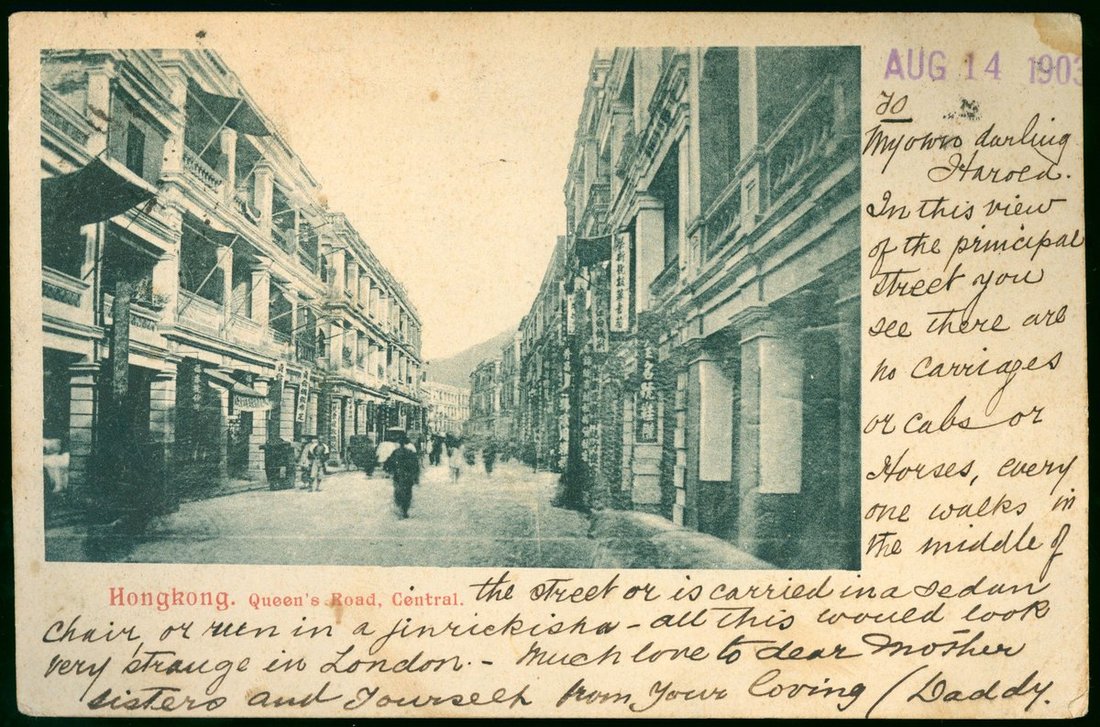 AUG 14 1903
To
My own darling
Harold.
In this view
of the principal
street you
see there are
no carriages
or cabs or
Horses, every
one walks in
the middle of
Hongkong. Queen's Road, Central.
the street or is carried in a sedan
chair, or run in a jinrickisha - all this would look
very strange in London. - Much love to dear Mother
sisters and Yourself from Your loving Daddy.